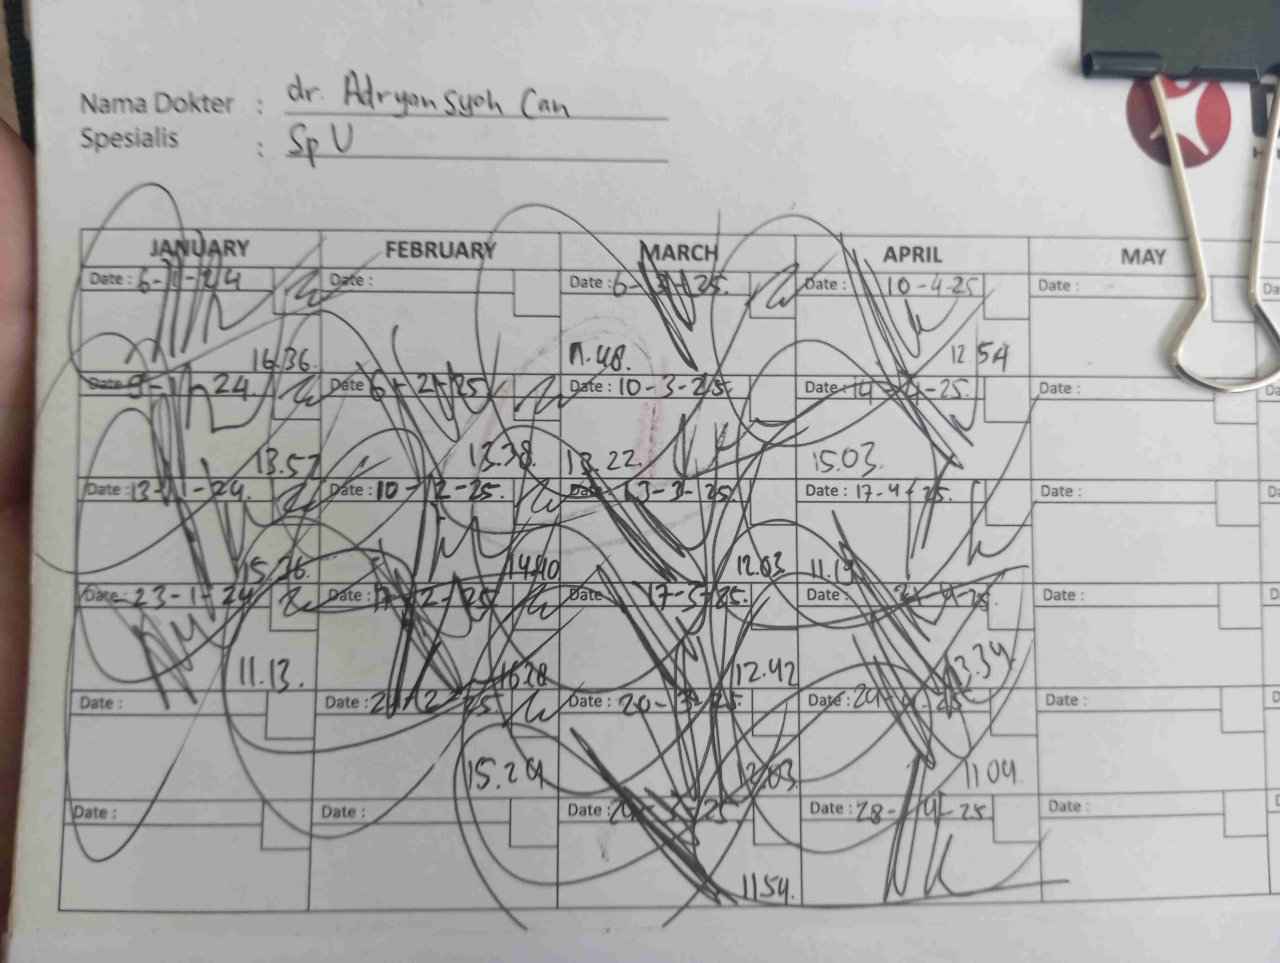 Nama Dokter : dr. Adryansyah Can
Spesialis : Sp U
JANUARY FEBRUARY MARCH APRIL MAY
Date : 6-1-24 Date : Date : 6-3-25. Date : 10-4-25 Date :
16.36. 11.48. 12.54
Date : 9-1-24. Date : 6-2-25 Date : 10-3-25. Date : 14-4-25. Date :
13.57 13.38. 13.22. 15.03.
Date : 13-1-24. Date : 10-2-25. Date : 13-3-25 Date : 17-4-25. Date :
15.36. 14.40 12.03
Date : 23-1-24 Date : 17-2-25 Date : 17-3-25. Date : Date :
11.13. 12.42 13.34.
Date : Date : Date : 20-3-25. Date : 24-4-25 Date :
15.24 12.03. 11 04
Date : Date : Date : 24-3-25 Date : 28-4-25 Date :
11 54.